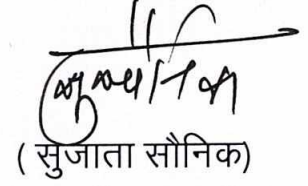 ( सुजाता सौनिक)